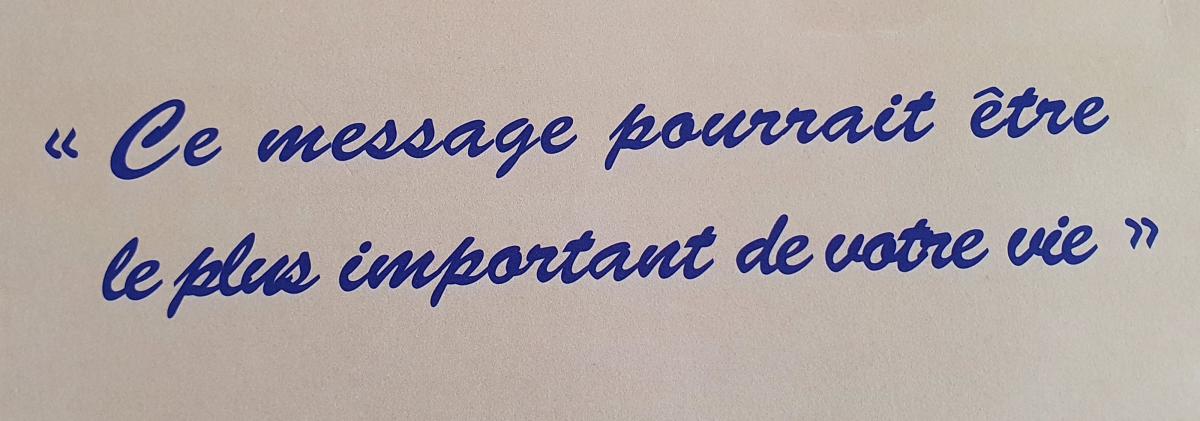 « Ce message pourrait être
le plus important de votre vie »